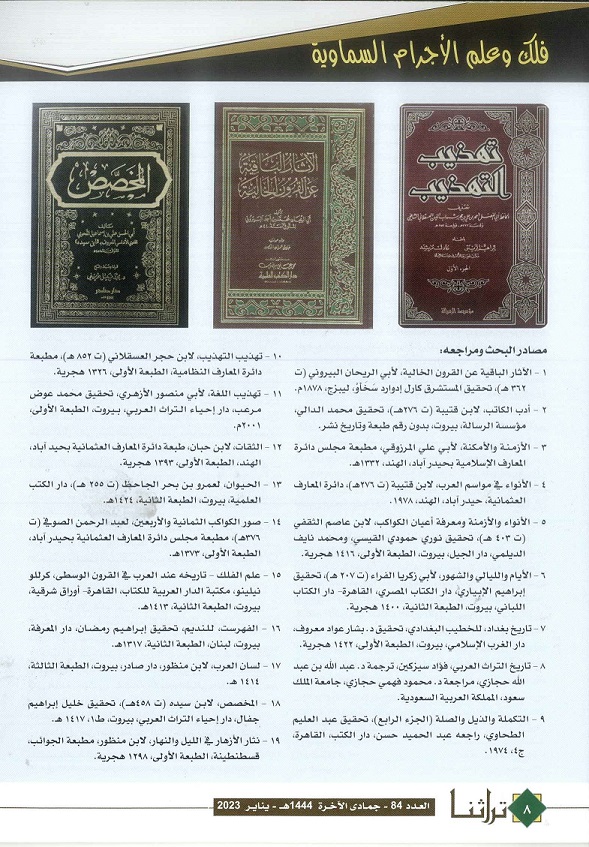 فلك وعلم الأجرام السماوية
تهذيب
التهذيب
الجزء الأول
الآثار الباقية
عن القرون الخالية
دار الكتب العلمية
المخصص
مصادر البحث ومراجعه:
١ - الآثار الباقية عن القرون الخالية، لأبي الريحان البيروني (ت
٣٦٢ هـ)، تحقيق المستشرق كارل إدوارد سَخَاوُ، ليبزج، ١٨٧٨م.
٢ - أدب الكاتب، لابن قتيبة (ت ٢٧٦هـ)، تحقيق محمد الدالي،
مؤسسة الرسالة، بيروت، بدون رقم طبعة وتاريخ نشر.
٣ - الأزمنة والأمكنة، لأبي علي المرزوقي، مطبعة مجلس دائرة
المعارف الإسلامية بحيدر آباد، الهند، ١٣٣٢هـ.
٤ - الأنواء في مواسم العرب، لابن قتيبة (ت ٢٧٦هـ)، دائرة المعارف
العثمانية، حيدر آباد، الهند، ١٩٧٨.
٥ - الأنواء والأزمنة ومعرفة أعيان الكواكب، لابن عاصم الثقفي
(ت ٤٠٣ هـ)، تحقيق نوري حمودي القيسي، ومحمد نايف
الديلمي، دار الجيل، بيروت، الطبعة الأولى، ١٤١٦ هجرية.
٦ - الأيام والليالي والشهور، لأبي زكريا الفراء (ت ٢٠٧ هـ)، تحقيق
إبراهيم الإبياري، دار الكتاب المصري، القاهرة- دار الكتاب
اللباني، بيروت، الطبعة الثانية، ١٤٠٠ هجرية.
٧ - تاريخ بغداد، للخطيب البغدادي، تحقيق د. بشار عواد معروف،
دار الغرب الإسلامي، بيروت، الطبعة الأولى، ١٤٢٢ هجرية.
٨ - تاريخ التراث العربي، فؤاد سيزكين، ترجمة د. عبد الله بن عبد
الله حجازي، مراجعة د. محمود فهمي حجازي، جامعة الملك
سعود، المملكة العربية السعودية.
٩ - التكملة والذيل والصلة (الجزء الرابع)، تحقيق عبد العليم
الطحاوي، راجعه عبد الحميد حسن، دار الكتب، القاهرة،
ج٤، ١٩٧٤.
١٠ - تهذيب التهذيب، لابن حجر العسقلاني (ت ٨٥٢ هـ)، مطبعة
دائرة المعارف النظامية، الطبعة الأولى، ١٣٢٦ هجرية.
١١ - تهذيب اللغة، لأبي منصور الأزهري، تحقيق محمد عوض
مرعب، دار إحياء التراث العربي، بيروت، الطبعة الأولى،
٢٠٠١م.
١٢ - الثقات، لابن حبان، طبعة دائرة المعارف العثمانية بحيد آباد،
الهند، الطبعة الأولى، ١٣٩٣ هجرية.
١٣ - الحيوان، لعمرو بن بحر الجاحظ (ت ٢٥٥ هـ)، دار الكتب
العلمية، بيروت، الطبعة الثانية، ١٤٢٤هـ.
١٤ - صور الكواكب الثمانية والأربعين، لعبد الرحمن الصوفي (ت
٣٧٦هـ)، مطبعة مجلس دائرة المعارف العثمانية بحيدر آباد،
الطبعة الأولى، ١٣٧٣هـ.
١٥ - علم الفلك - تاريخه عند العرب في القرون الوسطى، كرللو
نيلينو، مكتبة الدار العربية للكتاب، القاهرة- أوراق شرقية،
بيروت، الطبعة الثانية، ١٤١٣هـ.
١٦ - الفهرست، للنديم، تحقيق إبراهيم رمضان، دار المعرفة،
بيروت، لبنان، الطبعة الثانية، ١٣١٧هـ.
١٧ - لسان العرب، لابن منظور، دار صادر، بيروت، الطبعة الثالثة،
١٤١٤ هـ.
١٨ - المخصص، لابن سيده (ت ٤٥٨هـ)، تحقيق خليل إبراهيم
جفال، دار إحياء التراث العربي، بيروت، ط١، ١٤١٧ هـ.
١٩ - نثار الأزهار في الليل والنهار، لابن منظور، مطبعة الجوائب،
قسطنطينة، الطبعة الأولى، ١٢٩٨ هجرية.
٨
تراثنا
العدد 84 - جمادى الآخرة 1444هـ - يناير 2023